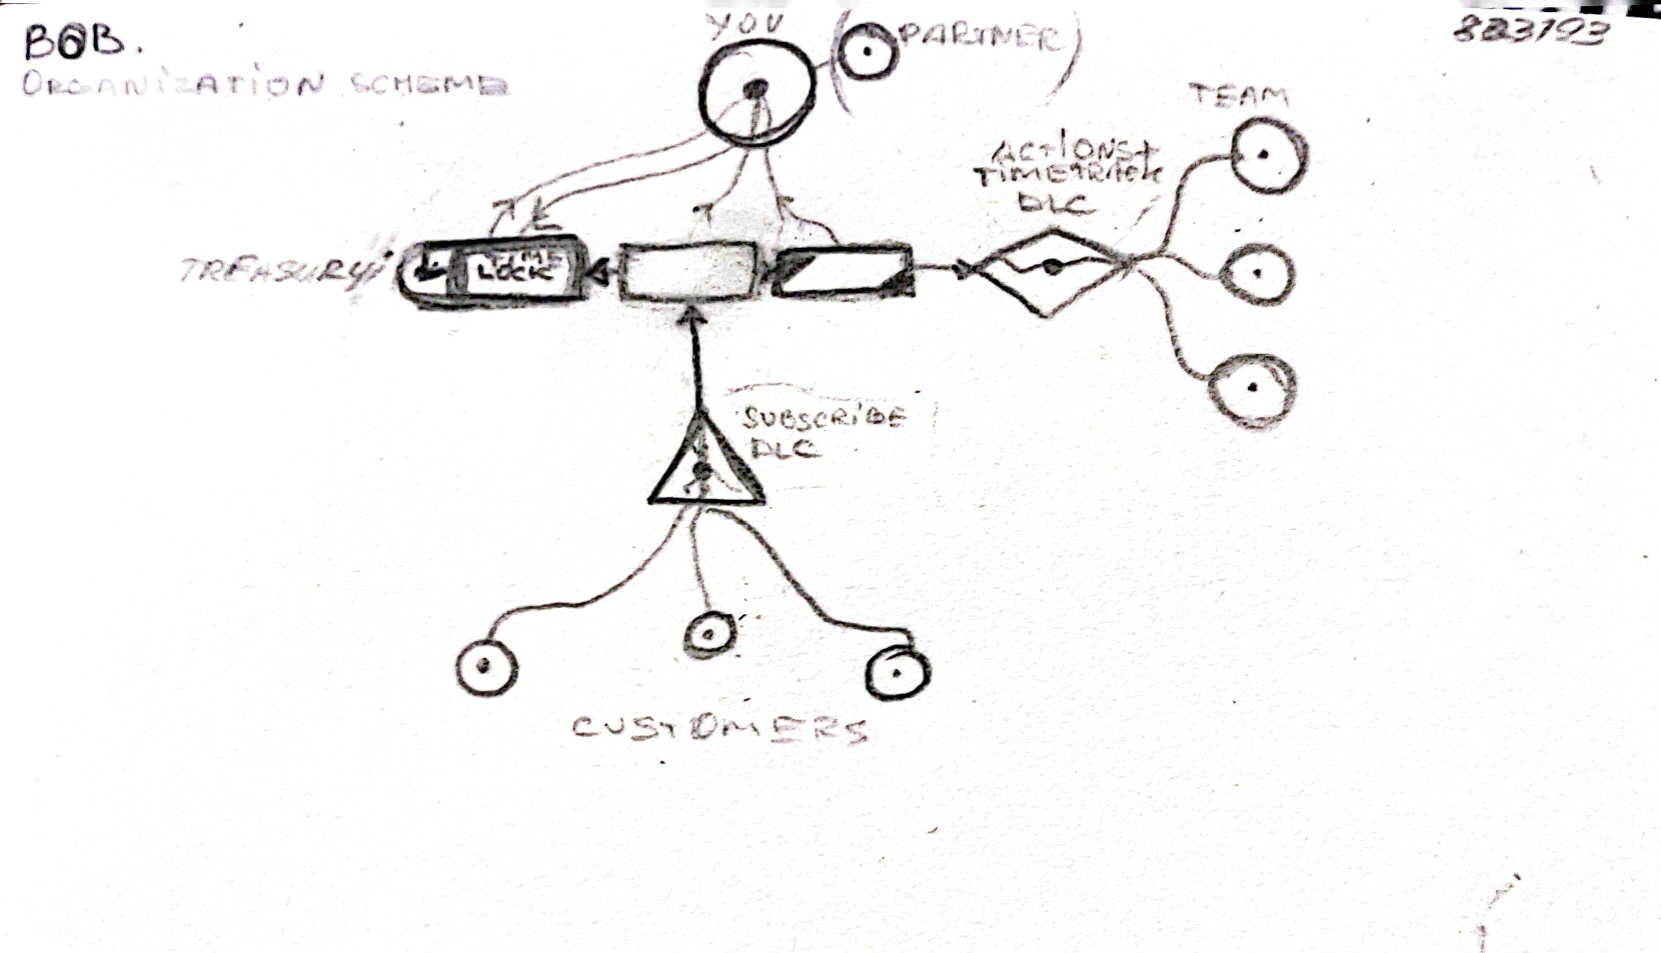 BOB.
ORGANIZATION SCHEME
YOU
(PARTNER)
883193
TEAM
ACTIONS+
TIMETRACK
DLC
TREASURY
LOCK
SUBSCRIBE
DLC
CUSTOMERS